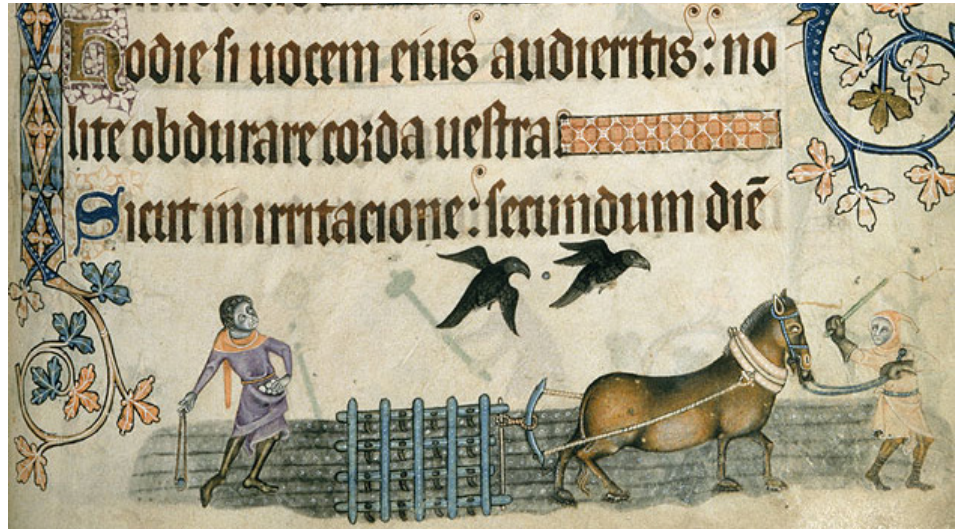 Hodie ſi uocem eius audieritis: no
lite obdurare corda ueſtra.
Sicut in irritacione: ſecundum diē